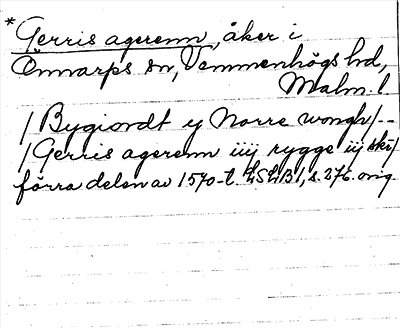 *Gerris agerenn, åker i
Önnarps sn, Vemmenhögs hd,
Malm. l
/ Bygiordt y Norre wongh/--
/Gerris agerenn iiij rygge iij skí/
förra delen av 1570-t. LSLB1, s. 276. orig.